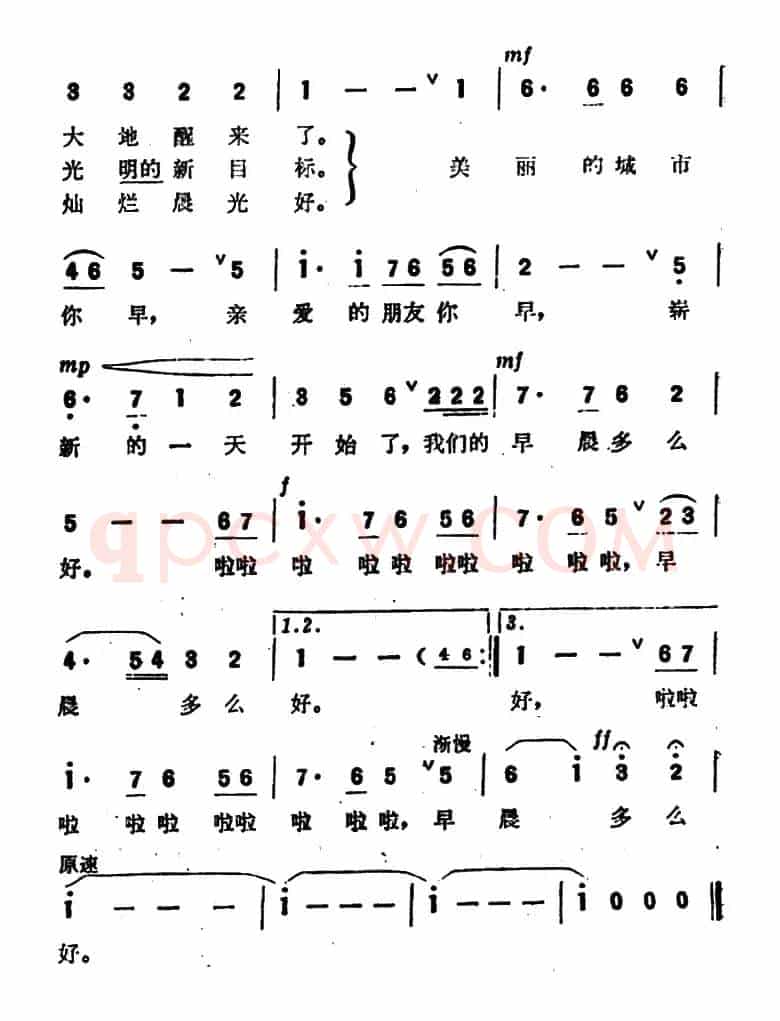 mf
3 3 2 2 | 1 — — ∨ 1 | 6· 6 6 6 |
大地醒来了。
光明的新目标。 美丽的城市
灿烂晨光好。
4 6 5 — ∨ 5 | i· i 7 6 5 6 | 2 — — ∨ 5 |
你早， 亲爱的朋友你早， 崭
mp mf
6· 7 1 2 | 3 5 6 ∨ 2 2 2 2 | 7· 7 6 2 |
新的一天开始了，我们的早晨多么
f
5 — — 6 7 | i· 7 6 5 6 | 7· 6 5 ∨ 2 3 |
好。 啦啦 啦 啦啦 啦啦 啦 啦啦，早
1.2. 3.
4· 5 4 3 2 | 1 — — ( 4 6 :‖ 1 — — ∨ 6 7 |
晨 多么 好。 好， 啦啦
渐慢 ff
i· 7 6 5 6 | 7· 6 5 ∨ 5 | 6 i 3 2 |
啦 啦啦 啦啦 啦 啦啦，早 晨 多么
原速
i — — — | i — — — | i — — — | i 0 0 0 ‖
好。
qpcxw.COM